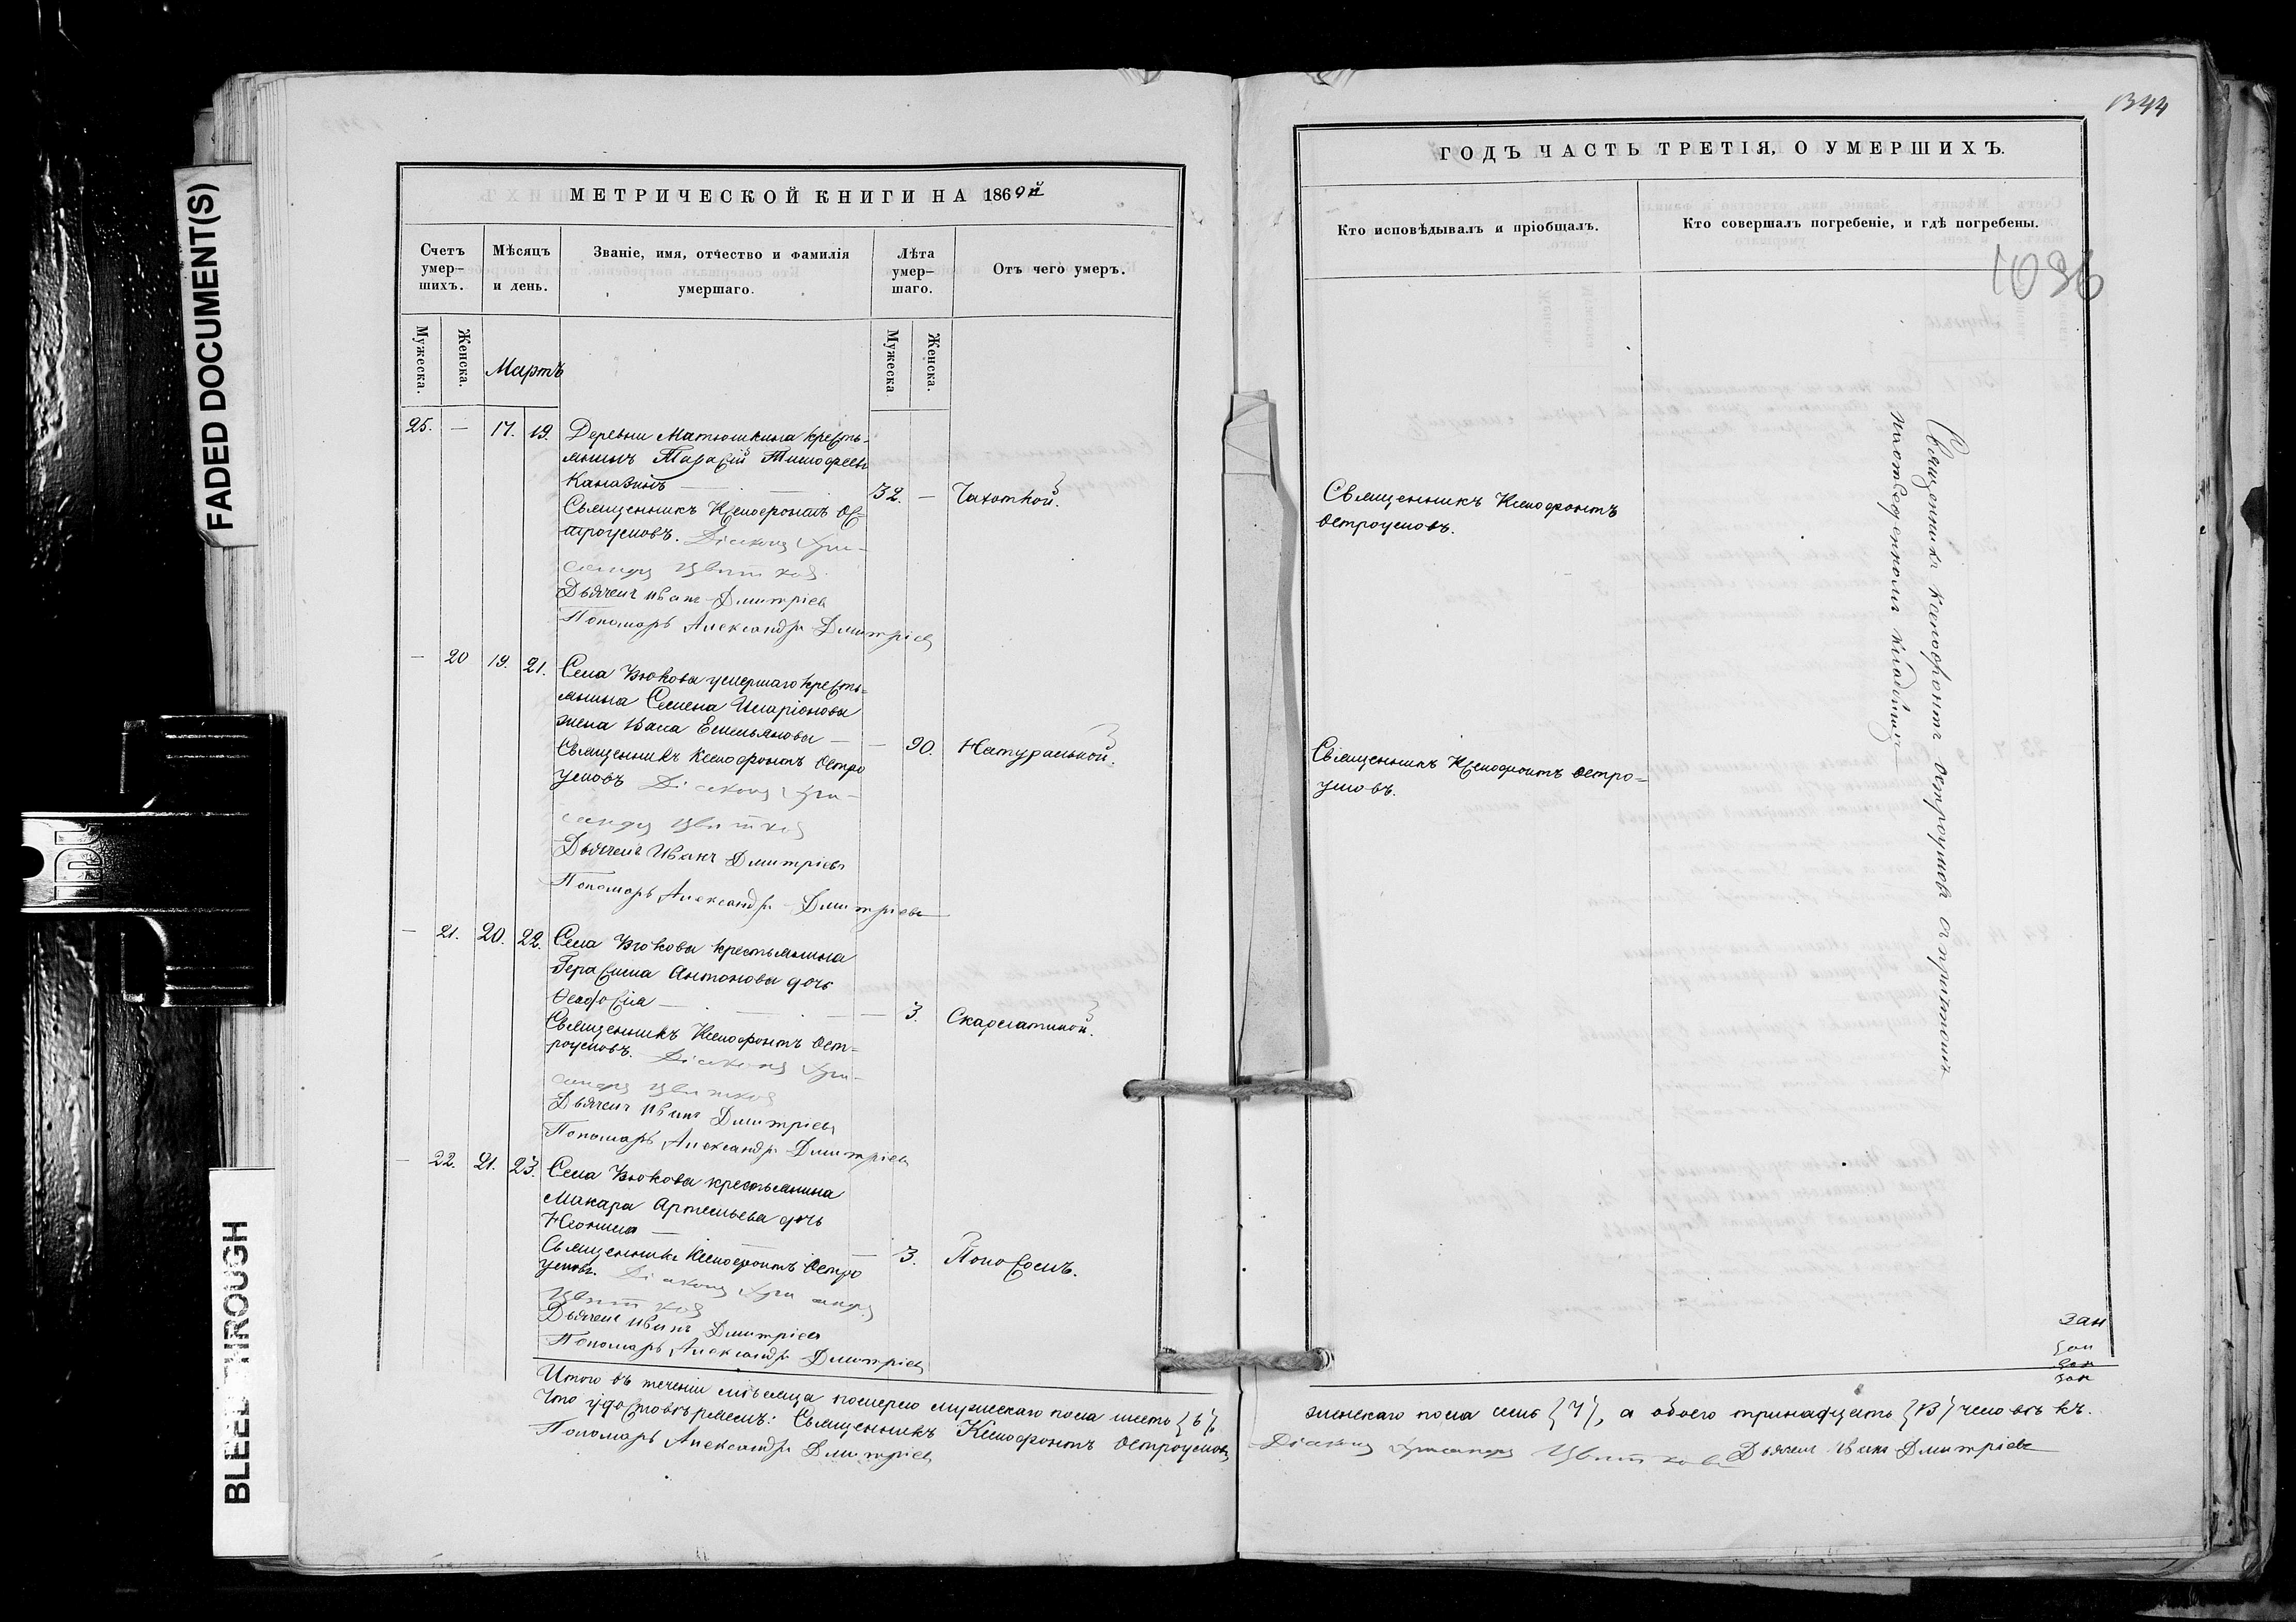 FADED DOCUMENT(S)
BLEED THROUGH
МЕТРИЧЕСКОЙ КНИГИ НА 1869й
Счетъ умер-шихъ.
Мѣсяцъ и день.
Званіе, имя, отчество и фамилія умершаго.
Лѣта умер-шаго.
Отъ чего умеръ.
Мужеска.
Женска.
Мартъ
Мужеска
Женска.
25. — 17. 19. Деревни Матюшкина кресть-
янинъ Тарасій Тимофеевъ
Каназинъ — 32. — Чахоткой.
Священникъ Ксенофонтъ Ос-
троумовъ. Діаконъ Хри-
санфъ Цвѣтков
Дьячекъ Иванъ Дмитріевъ
Пономарь Александръ Дмитріевъ
— 20 19. 21. Села Вюкова умершаго кресть-
янина Семена Иларіонова
жена Васа Емельянова — — 90. Натуральной.
Священникъ Ксенофонтъ Остро
умовъ Діаконъ Хри-
санфъ Цвѣтков
Дьячекъ Иванъ Дмитріевъ
Пономарь Александръ Дмитріевъ
— 21. 20. 22. Села Вюкова крестьянина
Герасима Антонова дочь
Феодосія — — 3. Скарлатиной.
Священникъ Ксенофонтъ Ост-
роумовъ. Діаконъ Хри-
санфъ Цвѣтков
Дьячекъ Иванъ Дмитріевъ
Пономарь Александръ Дмитріевъ
— 22. 21. 23. Села Вюкова крестьянина
Макара Артемьева дочь
Неонила — — 3. Поносомъ.
Священникъ Ксенофонтъ Остро
умовъ. Діаконъ Хрисанфъ
Цвѣтков
Дьячекъ Иванъ Дмитріевъ
Пономарь Александръ Дмитріевъ
Итого въ теченіи мѣсяца померло мужескаго пола шесть {6},
Что удостовѣряемъ: Священникъ Ксенофонтъ Остроумовъ
Пономарь Александръ Дмитріевъ
1344
ГОДЪ ЧАСТЬ ТРЕТІЯ, О УМЕРШИХЪ.
Кто исповѣдывалъ и пріобщалъ.
Кто совершалъ погребеніе, и гдѣ погребены.
1096
Священникъ Ксенофонтъ
Остроумовъ.
Священникъ Ксенофонтъ Остро-
умовъ.
Священникъ Ксенофонтъ Остроумовъ съ причтомъ
на отведенномъ кладбищѣ
женскаго пола семь {7}, а обоего тринадцать {13} человѣкъ.
Діаконъ Хрисанфъ Цвѣтковъ Дьячекъ Иванъ Дмитріевъ